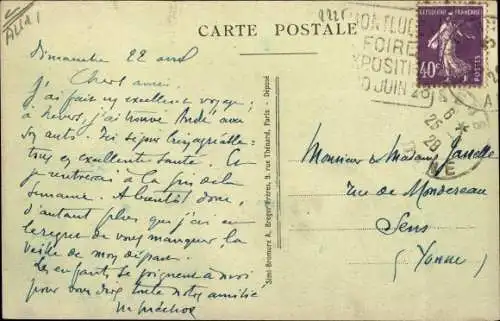 ALLIER
CARTE POSTALE
MONTLUÇON
FOIRE
EXPOSITION
10 JUIN 28
RÉPUBLIQUE FRANÇAISE
40c
POSTES
25
28
Dimanche 22 avril
Chers amis.
J'ai fait un excellent voyage;
à Nevers, j'ai trouvé André aux
Tr. séjour très agréable:
tous en excellente santé. Et
je rentrerai à la fin de la
semaine. A bientôt donc,
d'autant plus que j'ai eu
le regret de vous manquer, la
veille de mon départ.
Les enfants se joignent à moi
pour vous dire toute notre amitié
Simi-Bromure A. Breger Frères, 9, rue Thénard, Paris - Déposé
Monsieur et Madame
rue de Montereau
Sens
(Yonne)